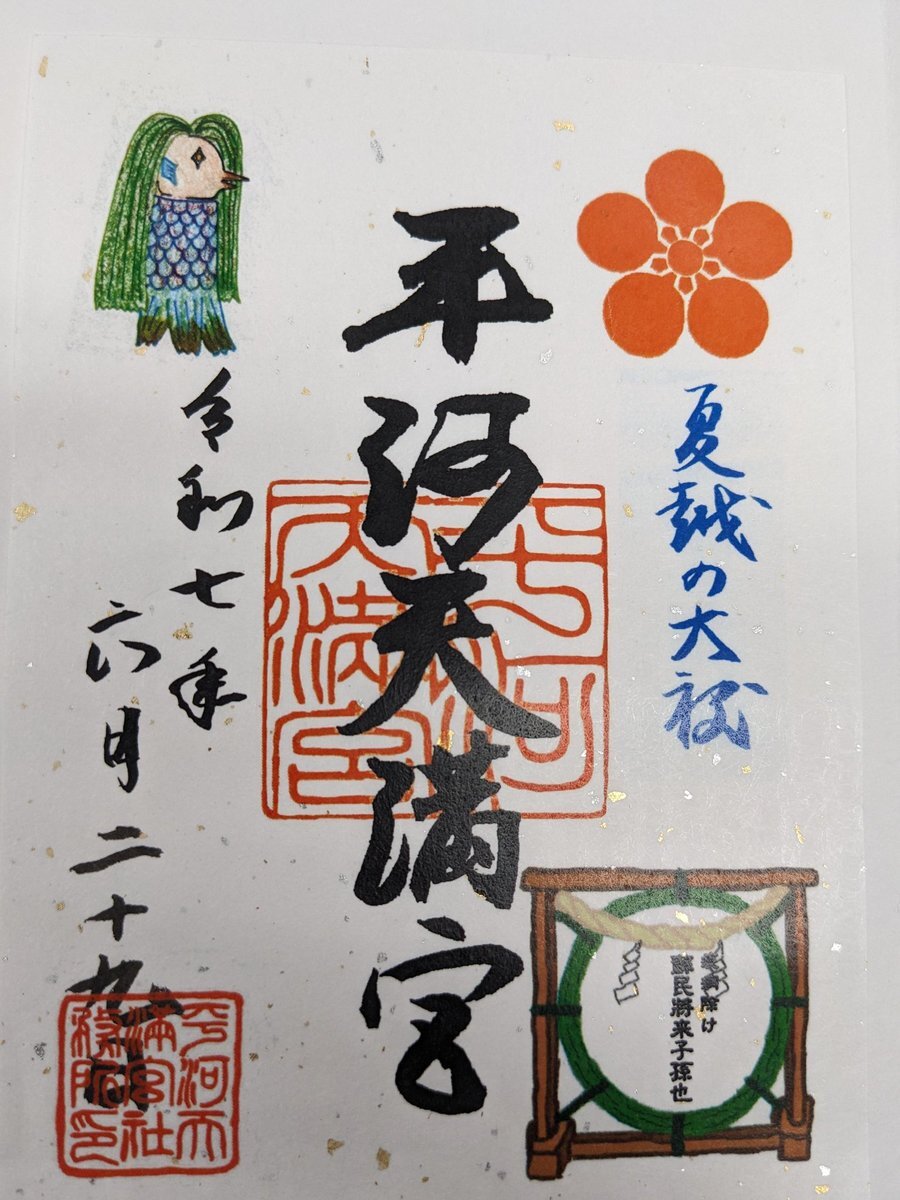 夏越の大祓
蘇民將来子孫也
平河天満宮
平河
天満宮
令和七年
六月二十九日
平河天
満宮社
務所印